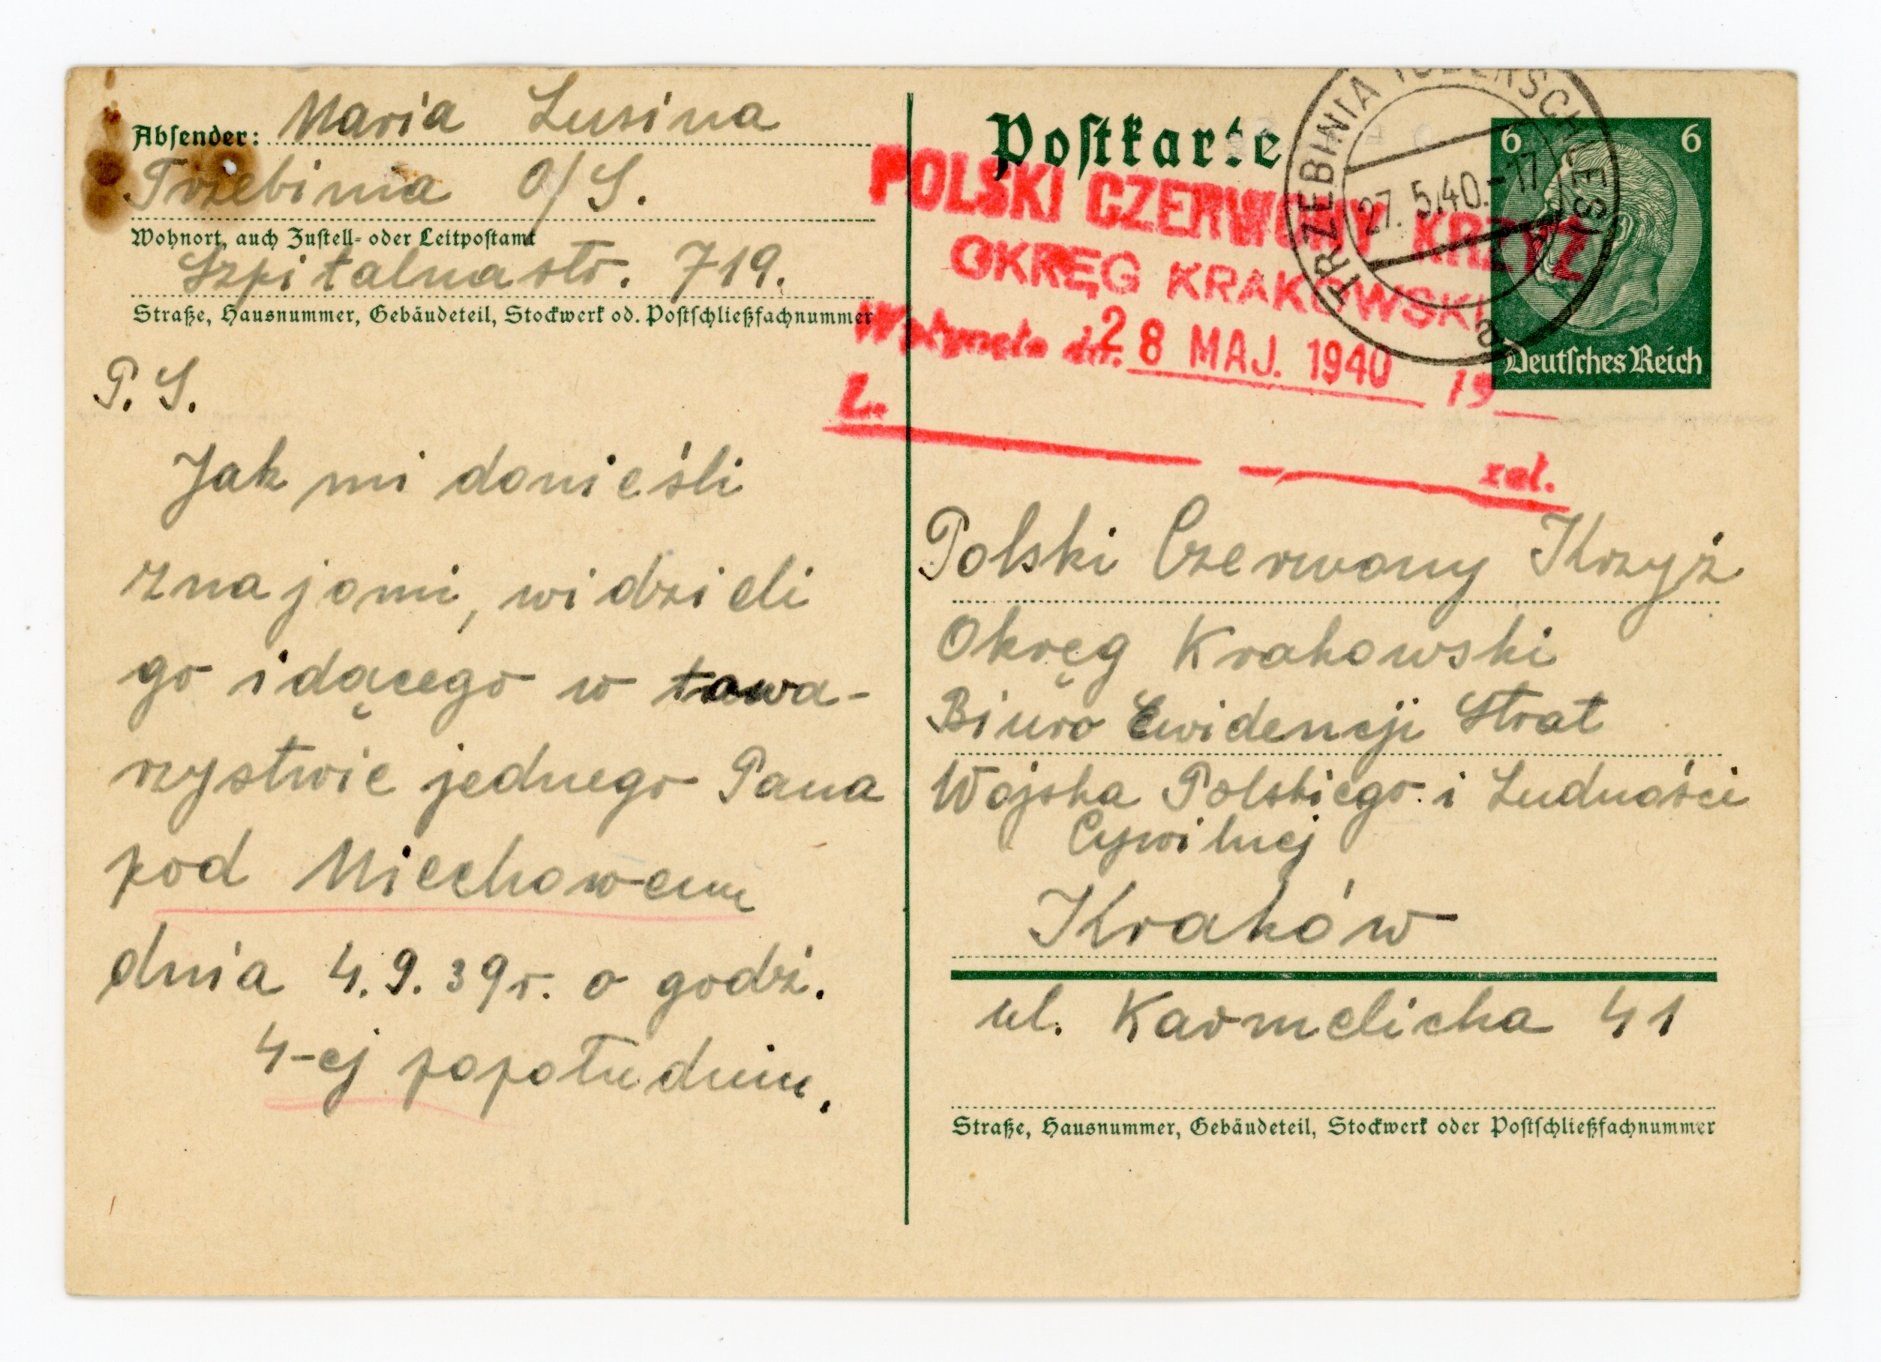 Absender: Maria Lusina
Trzebinia O/S.
Wohnort, auch Zustell- oder Leitpostamt
Szpitalnastr. 719.
Straße, Hausnummer, Gebäudeteil, Stockwerk od. Postschließfachnummer
P. S.
Jak mi donieśli
znajomi, widzieli
go idącego w towa-
rzystwie jednego Pana
pod Miechowem
dnia 4.9.39r. o godz.
4-ej popołudniu.
Postkarte
TRZEBINIA (OBERSCHLES)
27.5.40.-17
a
6 6
Deutsches Reich
POLSKI CZERWONY KRZYŻ
OKRĘG KRAKOWSKI
Wpłynęło dn. 28 MAJ. 1940 19
L. zał.
Polski Czerwony Krzyż
Okręg Krakowski
Biuro Ewidencji Strat
Wojska Polskiego i Ludności
Cywilnej
Kraków
ul. Karmelicka 41
Straße, Hausnummer, Gebäudeteil, Stockwerk oder Postschließfachnummer